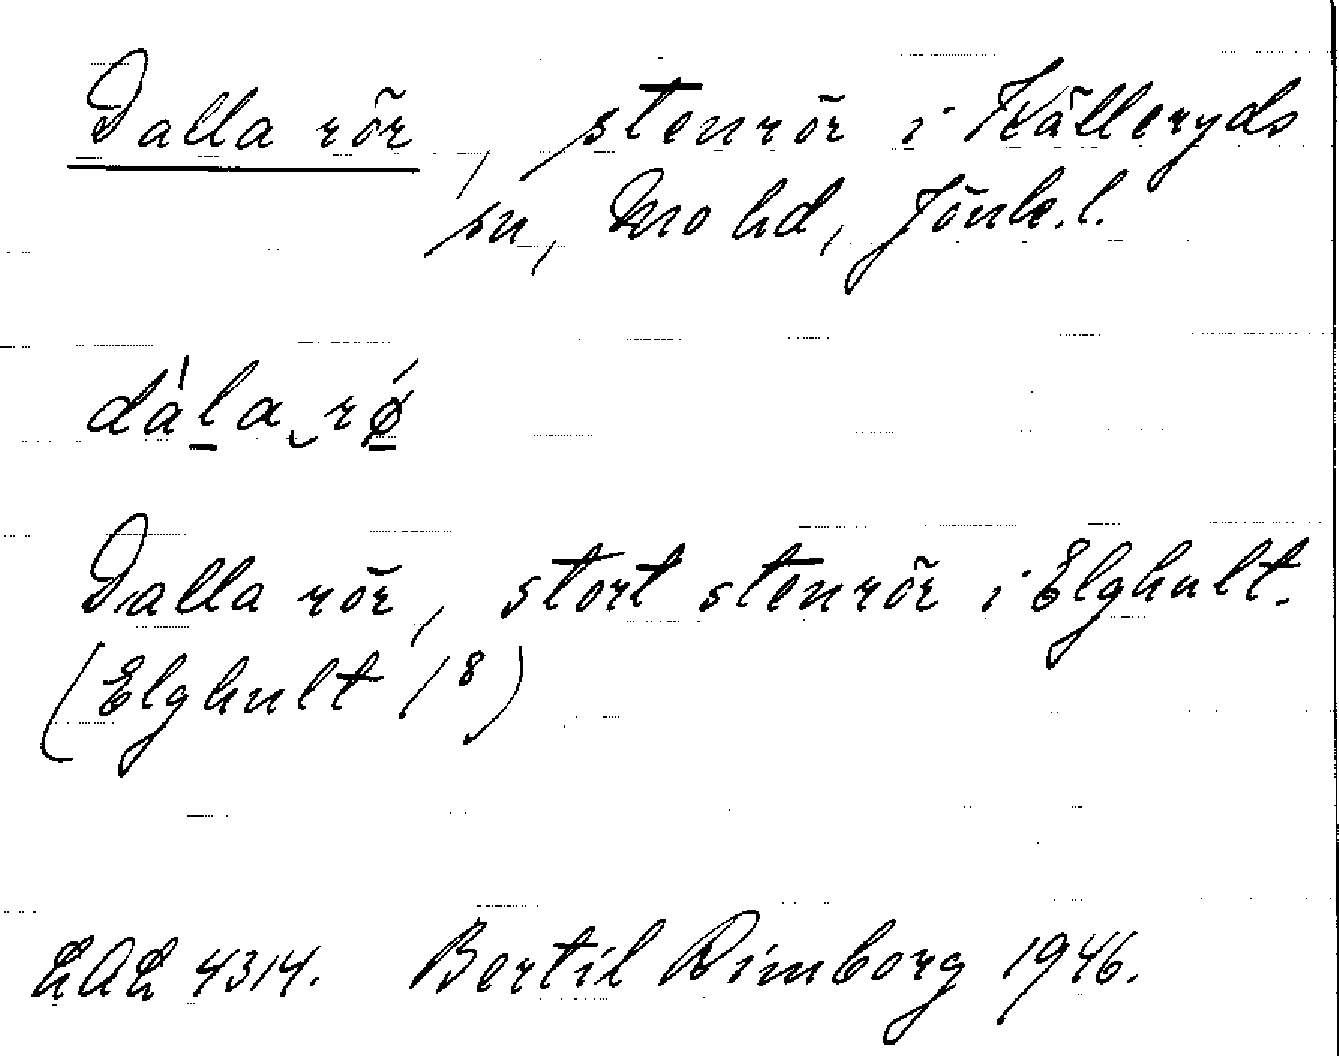 Dalla rör, stenrör i Källeryds
sn, Mo hd, Jönk. l.
dàla‿rǿ
Dalla rör, stort stenrör i Elghult.
(Elghult 1⁸)
LAL 4314. Bertil Rimborg 1946.